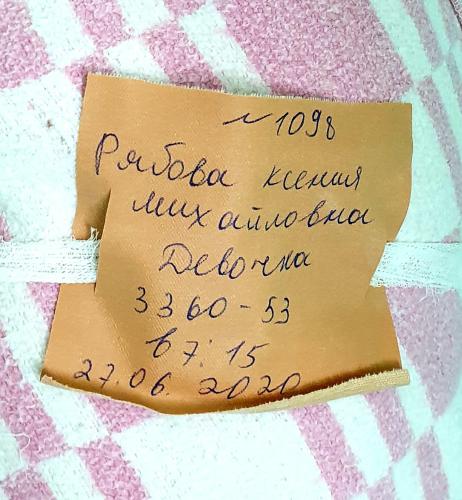 №1098
Рябова Ксения
Михайловна
Девочка
3360-53
в 7:15
27.06.2020